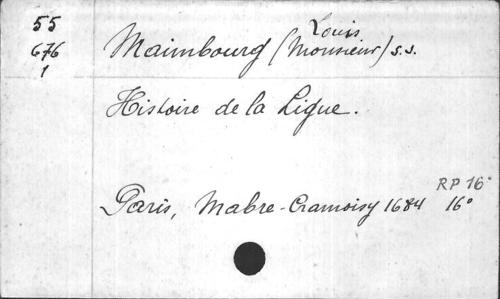 55
676
1
Louis
Maimbourg (Monsieur) s.s.
Histoire de la Ligue.
RP 16°
Paris, Mabre-Cramoisy 1684 16°